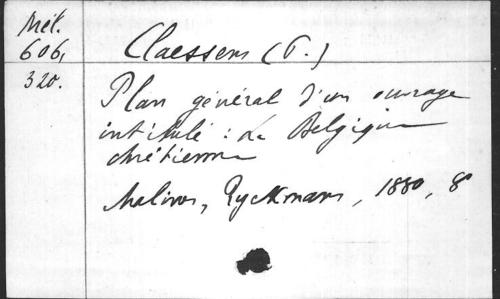 Mél.
606,
320.
Claessens (P.)
Plan général d'un ouvrage
intitulé : La Belgique
chrétienne
Malines, Ryckmans, 1880, 8°